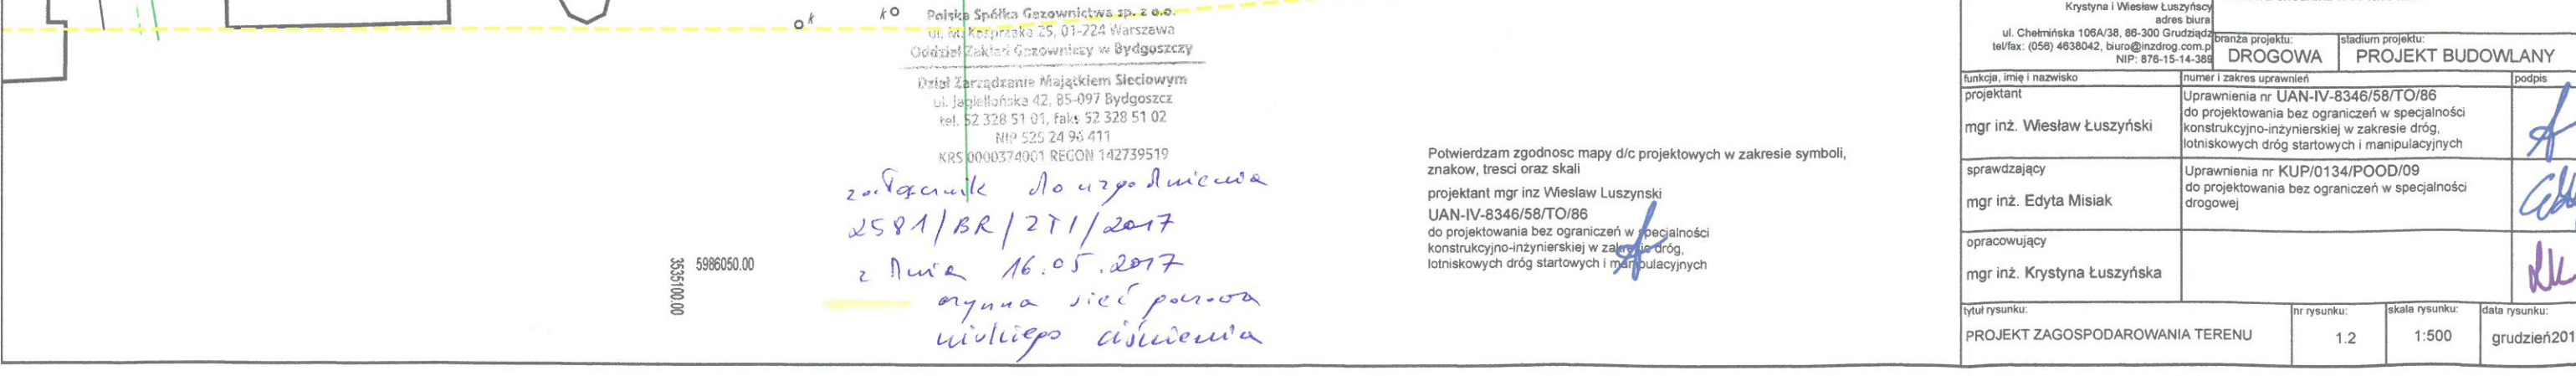 k
k
Polska Spółka Gazownictwa sp. z o.o.
ul. M. Kasprzaka 25, 01-224 Warszawa
Oddział Zakład Gazowniczy w Bydgoszczy
Dział Zarządzania Majątkiem Sieciowym
ul. Jagiellońska 42, 85-097 Bydgoszcz
tel. 52 328 51 01, faks 52 328 51 02
NIP 525 24 96 411
KRS 0000374001 REGON 142739519
załącznik do uzgodnienia
2581/BR/ZTI/2017
z dnia 16.05.2017
czynna sieć gazowa
niskiego ciśnienia
5986050.00
3535100.00
Potwierdzam zgodnosc mapy d/c projektowych w zakresie symboli,
znakow, tresci oraz skali
projektant mgr inz Wieslaw Luszynski
UAN-IV-8346/58/TO/86
do projektowania bez ograniczeń w specjalności
konstrukcyjno-inżynierskiej w zakresie dróg,
lotniskowych dróg startowych i manipulacyjnych
Krystyna i Wiesław Łuszyńscy
adres biura
ul. Chełmińska 106A/38, 86-300 Grudziądz
tel/fax: (056) 4638042, biuro@inzdrog.com.p
NIP: 876-15-14-389
branża projektu:
DROGOWA
stadium projektu:
PROJEKT BUDOWLANY
funkcja, imię i nazwisko
numer i zakres uprawnień
podpis
projektant
mgr inż. Wiesław Łuszyński
Uprawnienia nr UAN-IV-8346/58/TO/86
do projektowania bez ograniczeń w specjalności
konstrukcyjno-inżynierskiej w zakresie dróg,
lotniskowych dróg startowych i manipulacyjnych
sprawdzający
mgr inż. Edyta Misiak
Uprawnienia nr KUP/0134/POOD/09
do projektowania bez ograniczeń w specjalności
drogowej
opracowujący
mgr inż. Krystyna Łuszyńska
tytuł rysunku:
PROJEKT ZAGOSPODAROWANIA TERENU
nr rysunku:
1.2
skala rysunku:
1:500
data rysunku:
grudzień201